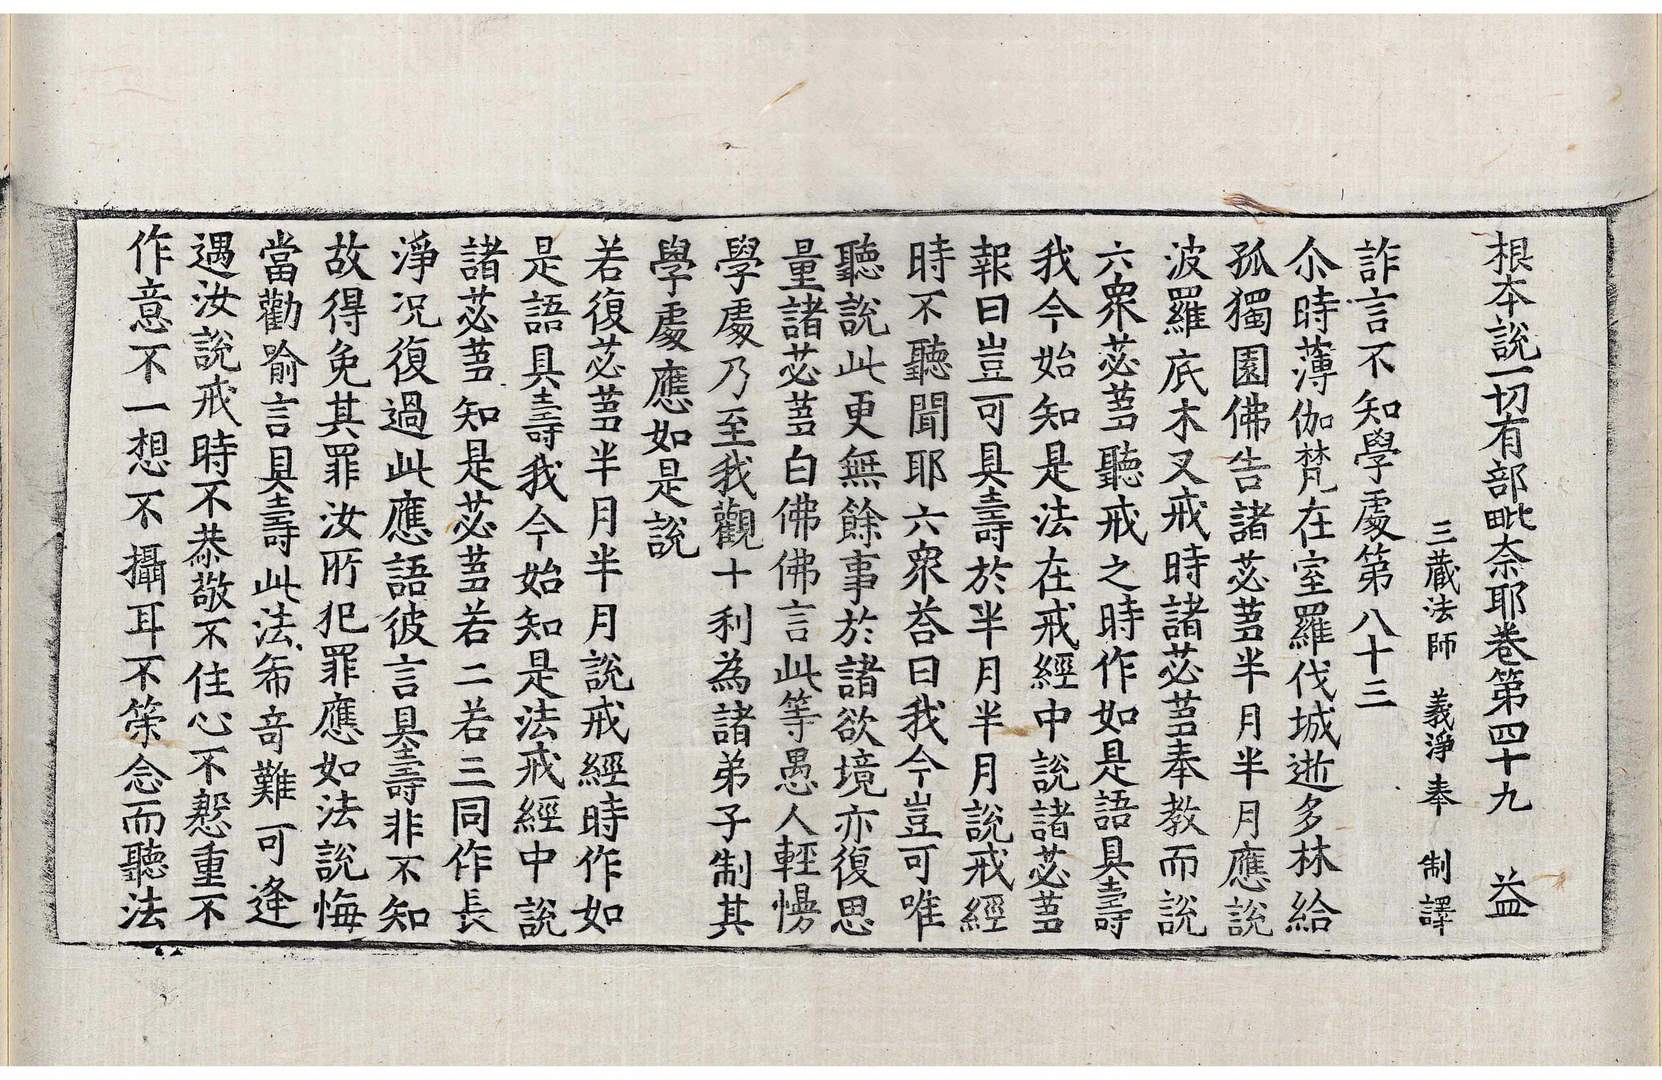 根本說一切有部毗奈耶卷第四十九　益
三藏法師　義淨奉　制譯
詐言不知學處第八十三
尒時薄伽梵在室羅伐城逝多林給
孤獨園佛告諸苾蒭半月半月應說
波羅底木叉戒時諸苾蒭奉教而說
六衆苾蒭聽戒之時作如是語具壽
我今始知是法在戒經中說諸苾蒭
報曰豈可具壽於半月半月說戒經
時不聽聞耶六衆荅曰我今豈可唯
聽說此更無餘事於諸欲境亦復思
量諸苾蒭白佛佛言此等愚人輕慢
學處乃至我觀十利為諸弟子制其
學處應如是說
若復苾蒭半月半月說戒經時作如
是語具壽我今始知是法戒經中說
諸苾蒭知是苾蒭若二若三同作長
淨况復過此應語彼言具壽非不知
故得免其罪汝所犯罪應如法說悔
當勸喻言具壽此法希竒難可逢
遇汝說戒時不恭敬不住心不慇重不
作意不一想不攝耳不䇿念而聽法